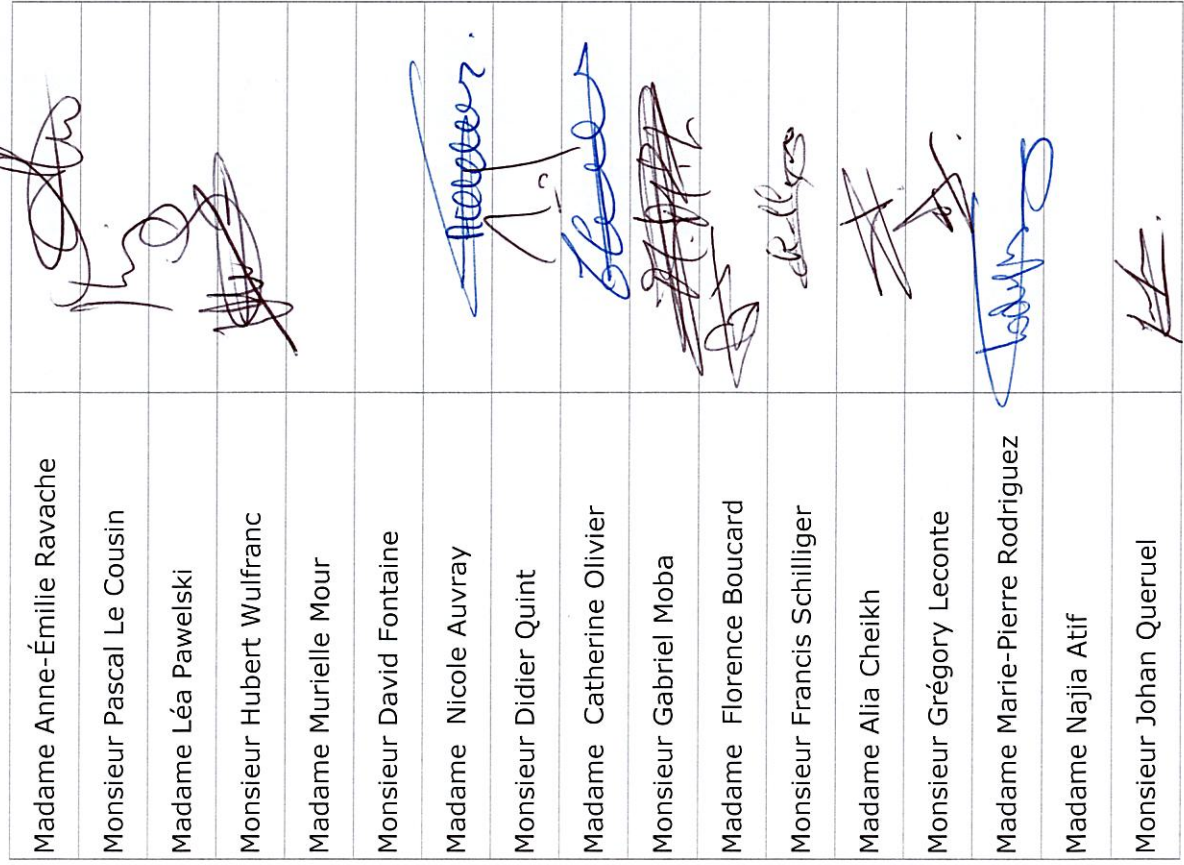 Madame Anne-Émilie Ravache
Monsieur Pascal Le Cousin
Madame Léa Pawelski
Monsieur Hubert Wulfranc
Madame Murielle Mour
Monsieur David Fontaine
Madame Nicole Auvray
Monsieur Didier Quint
Madame Catherine Olivier
Monsieur Gabriel Moba
Madame Florence Boucard
Monsieur Francis Schilliger
Madame Alia Cheikh
Monsieur Grégory Leconte
Madame Marie-Pierre Rodriguez
Madame Najia Atif
Monsieur Johan Queruel